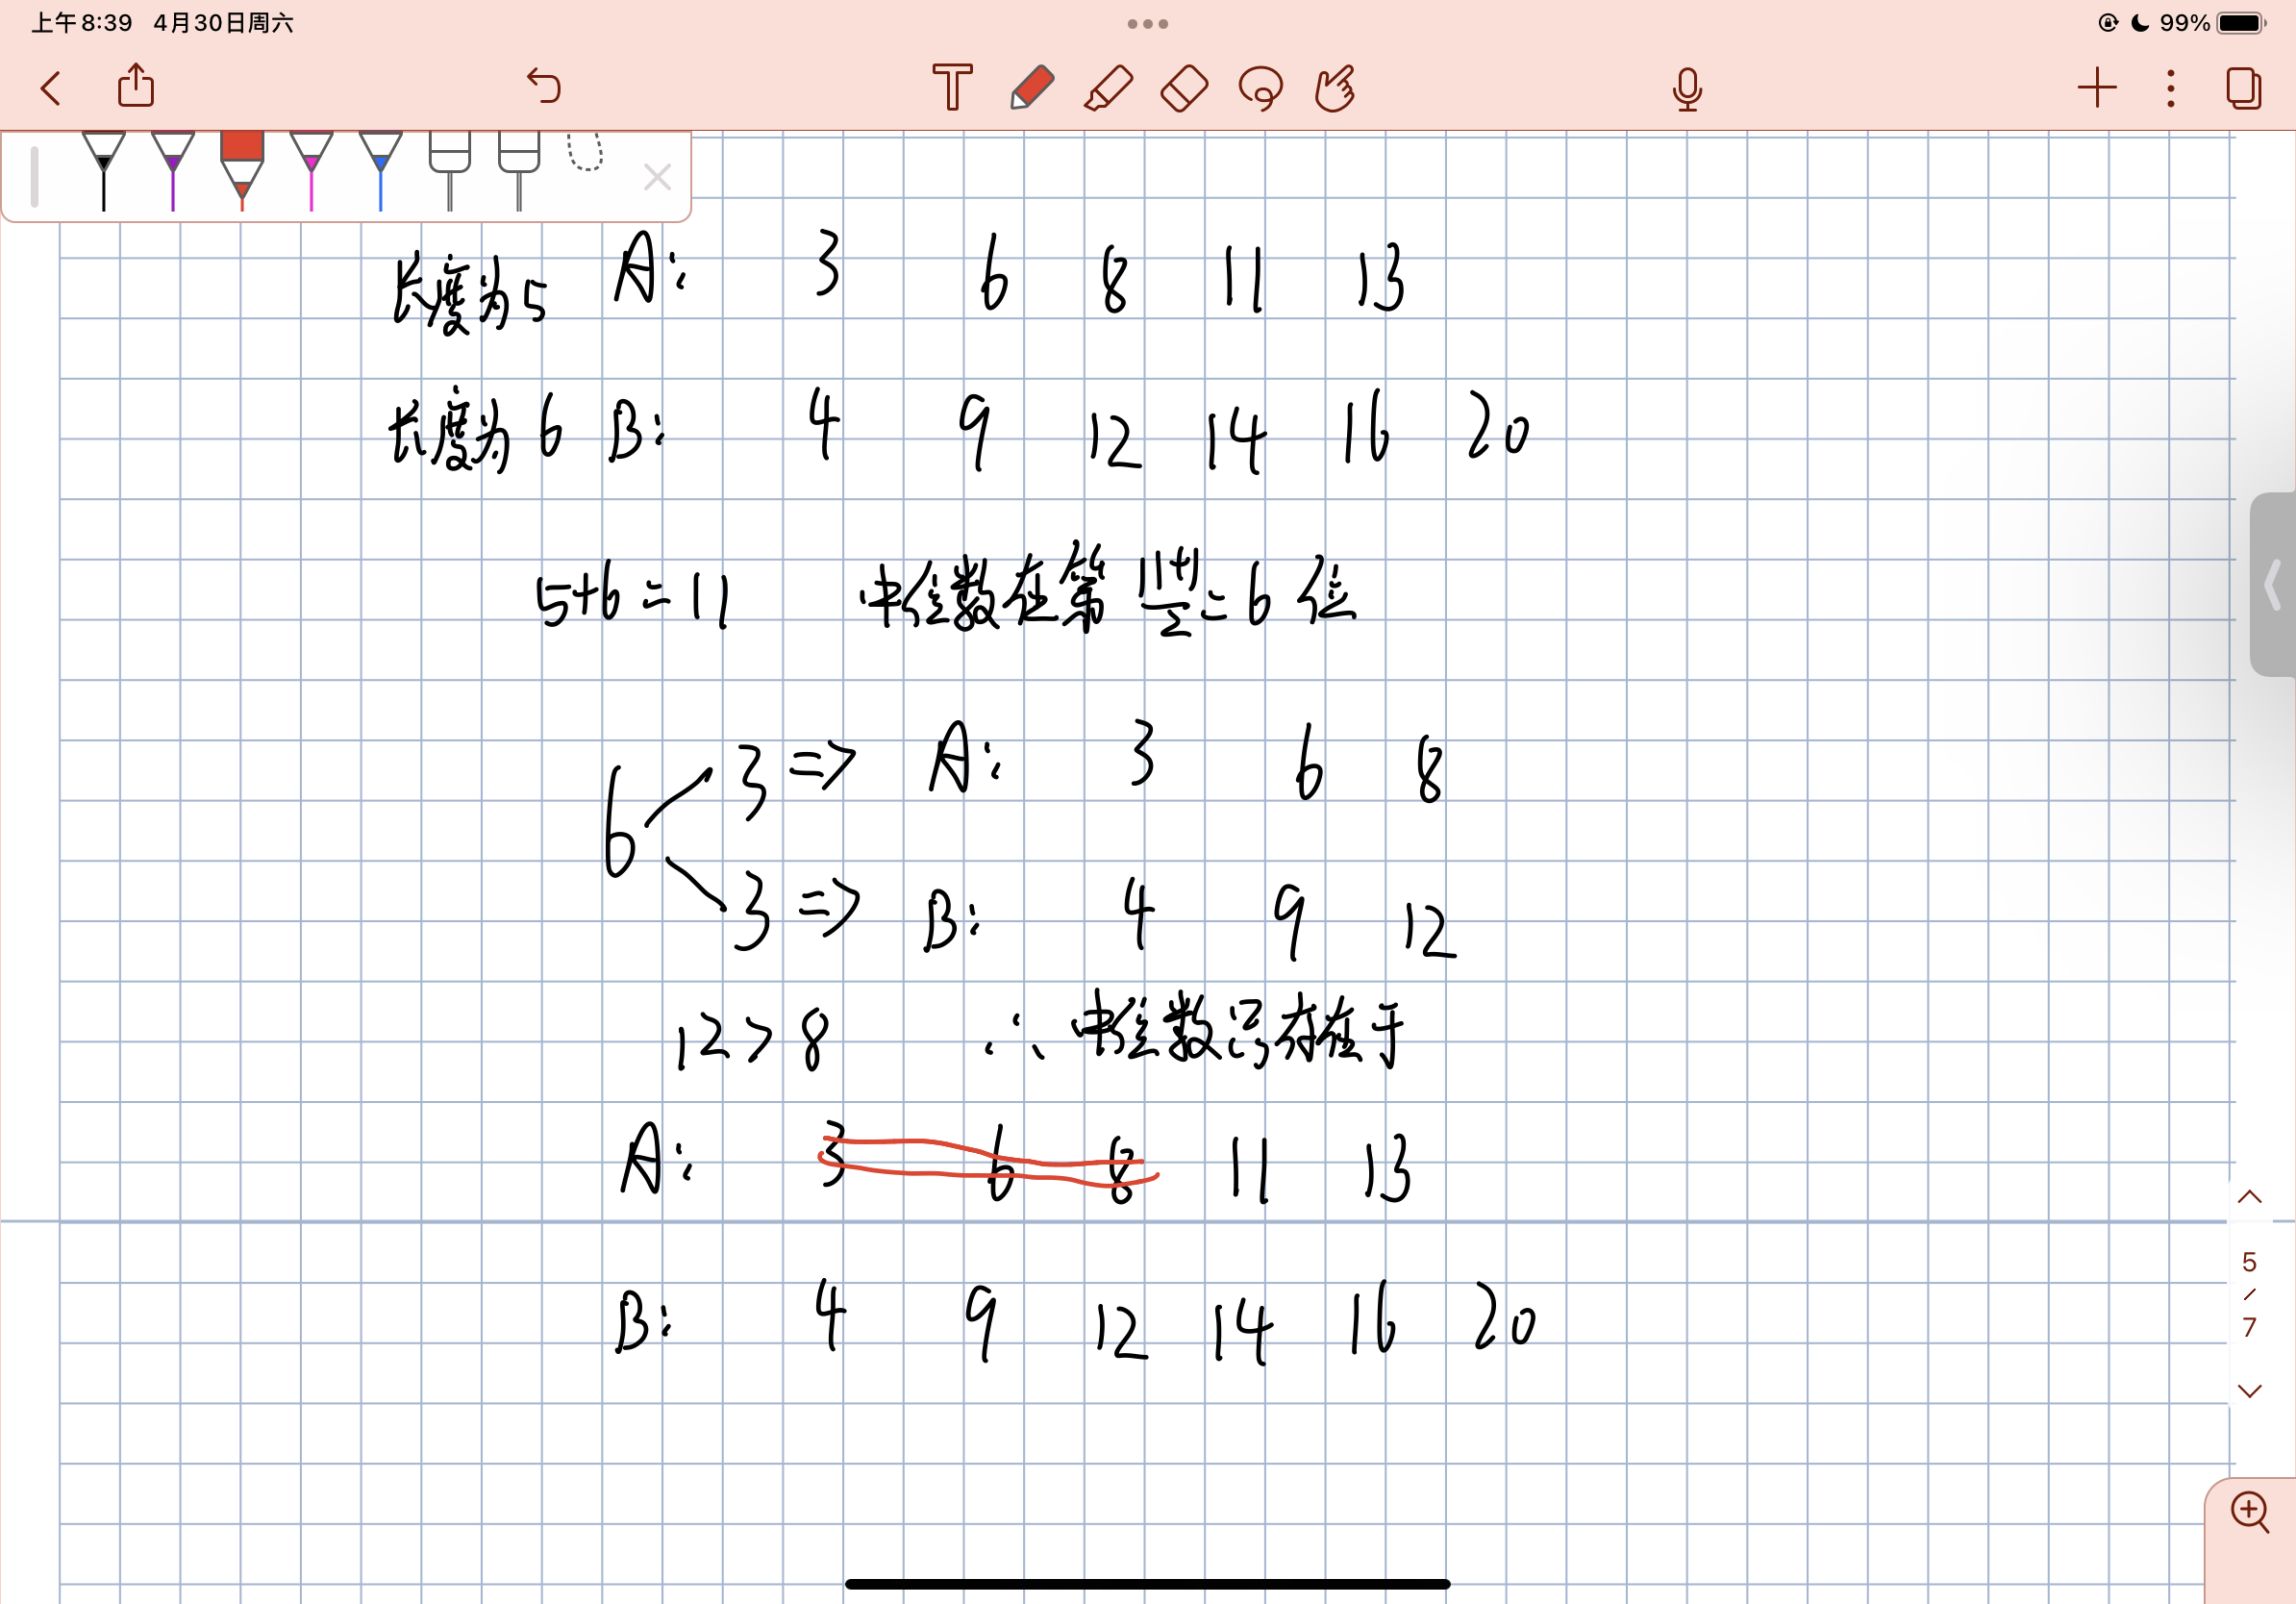 上午8:39 4月30日周六
99%
长度为5 A: 3 6 8 11 13
长度为6 B: 4 9 12 14 16 20
5+6=11 中位数在第 (11+1)/2=6 位
3 => A: 3 6 8
6
3 => B: 4 9 12
12>8 ∴ 中位数只存在于
A: 3 6 8 11 13
B: 4 9 12 14 16 20
5
/
7